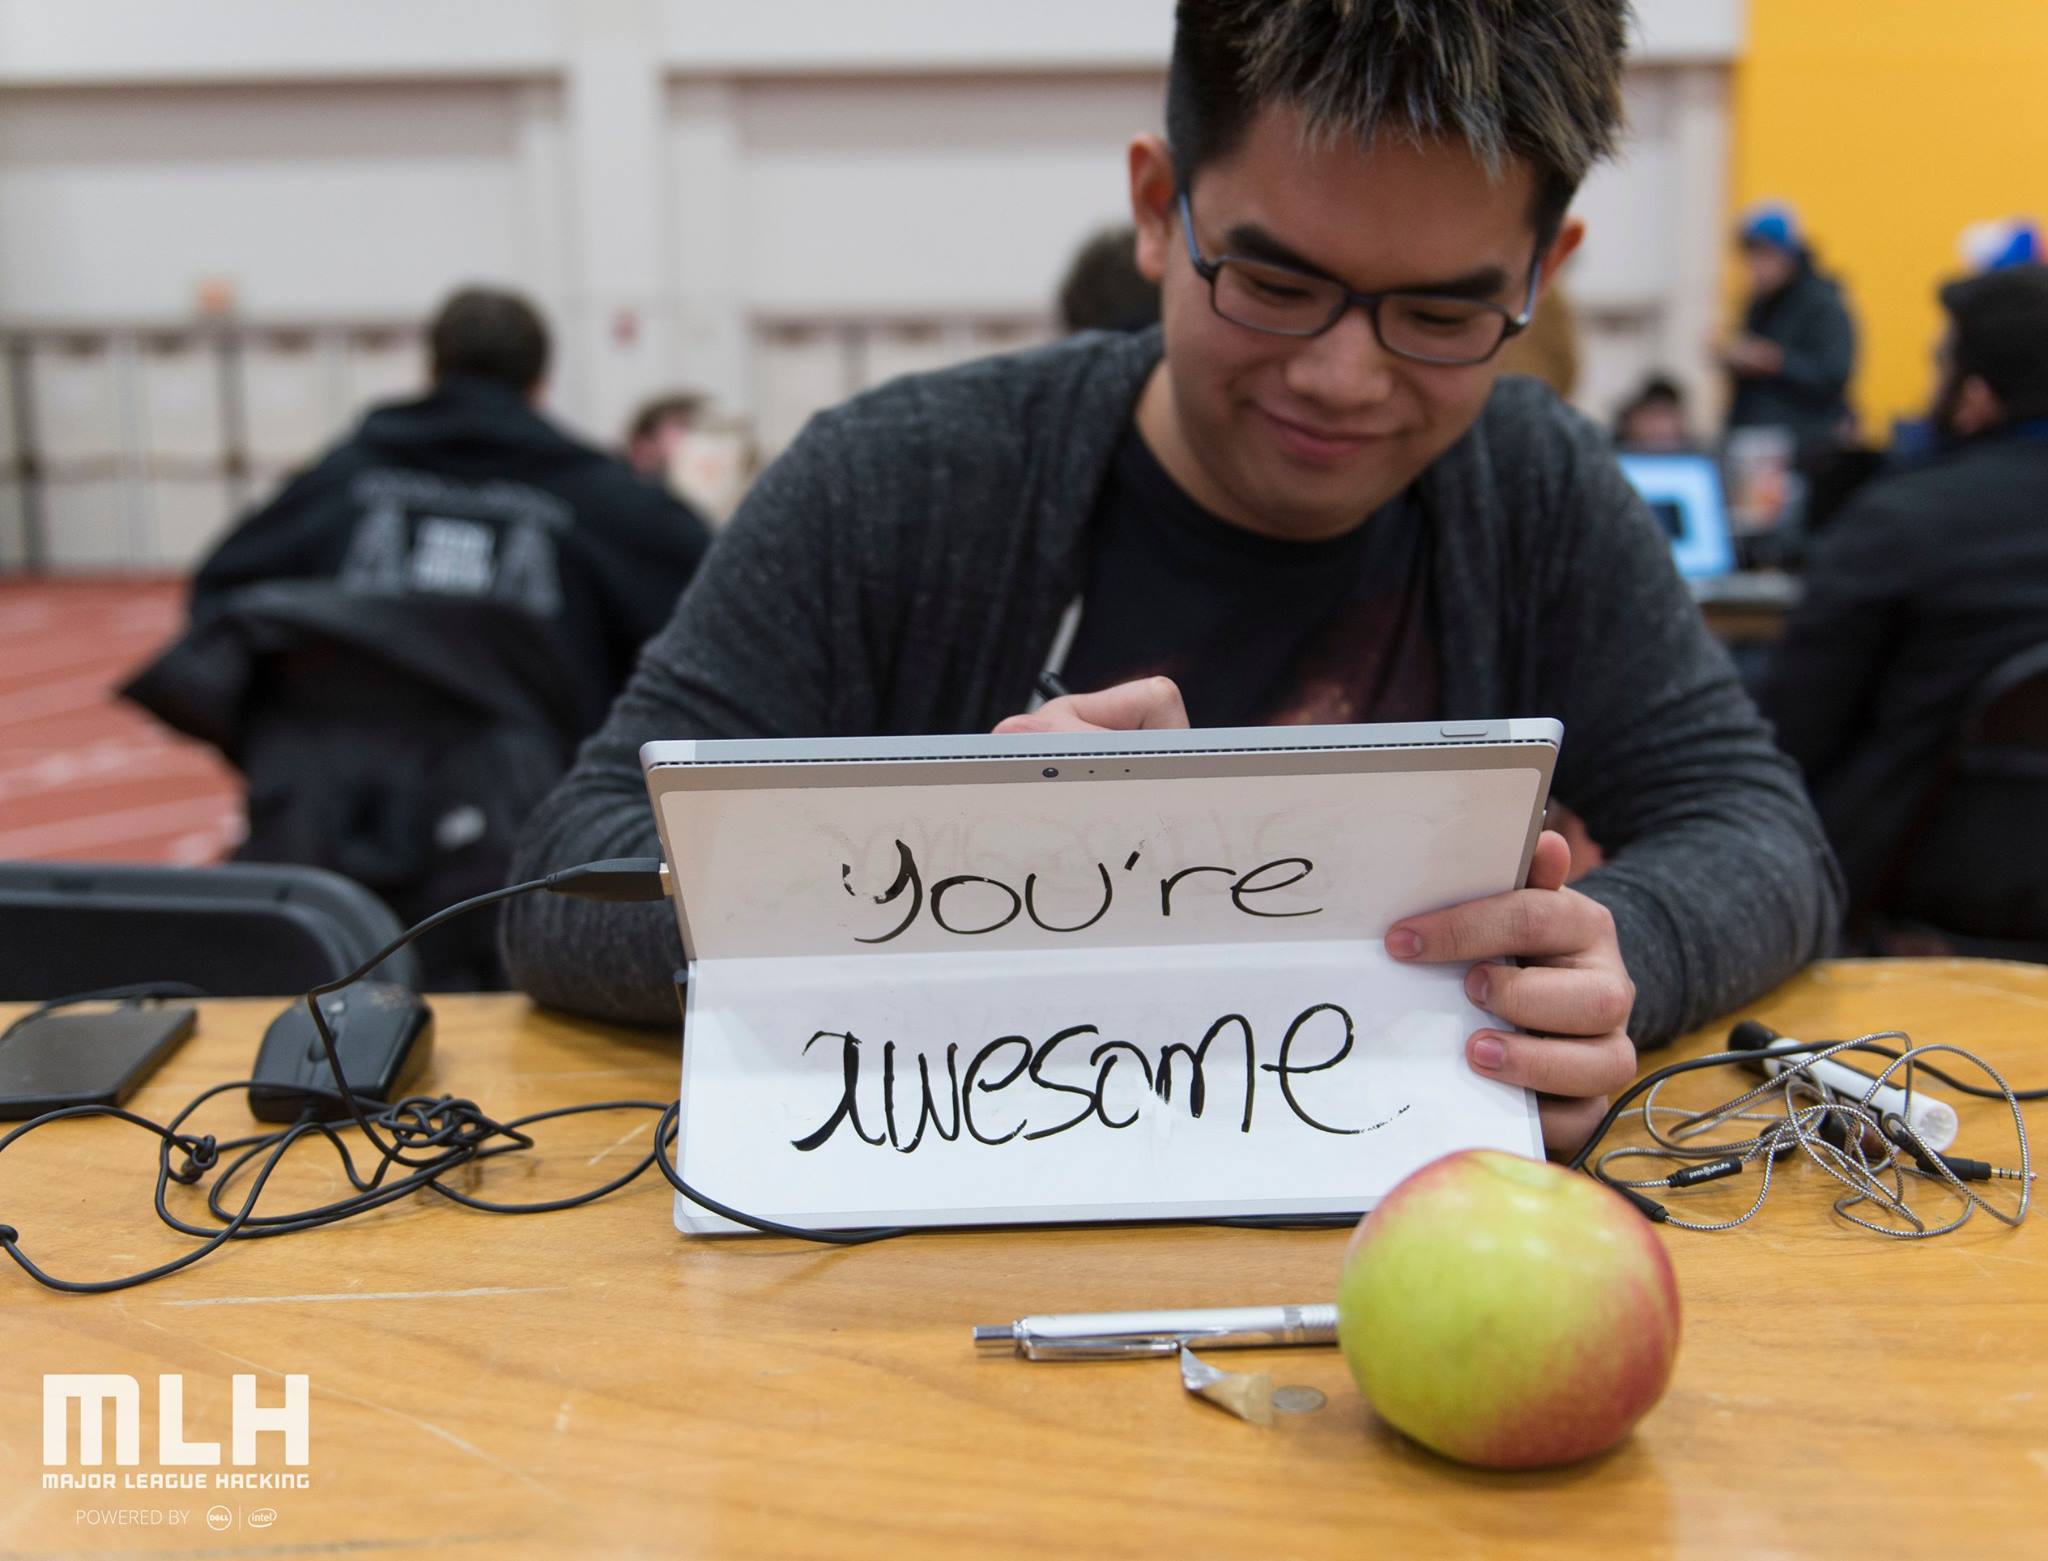 you're
awesome
MLH
MAJOR LEAGUE HACKING
POWERED BY DELL intel